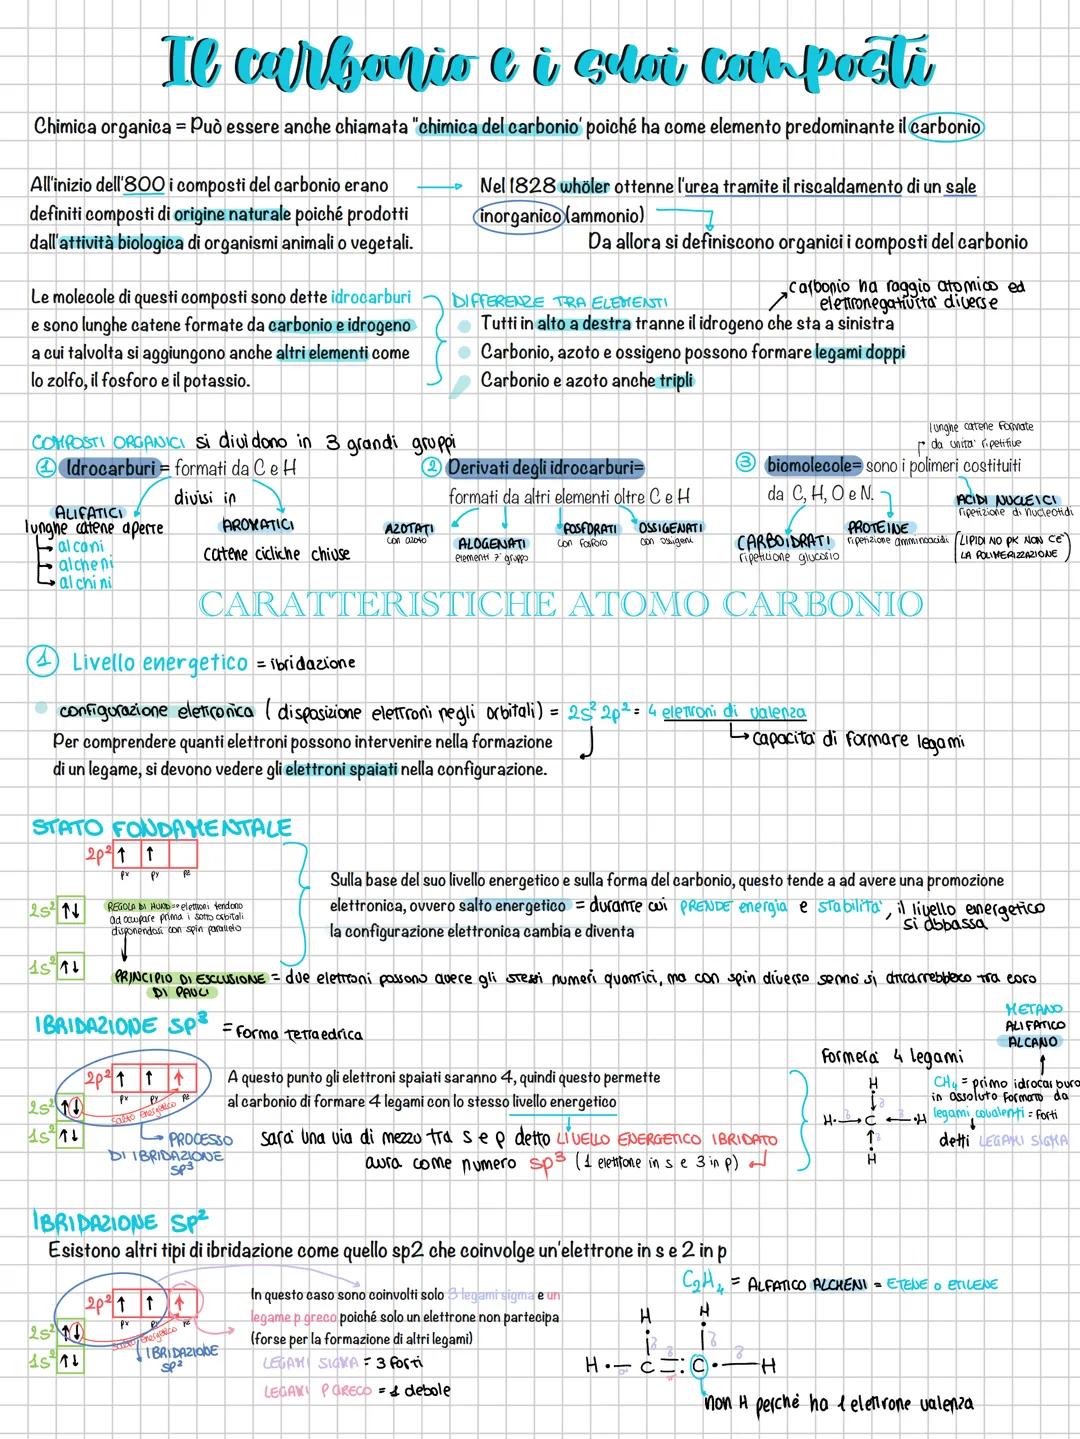 Il carbonio e i suoi composti
Chimica organica = Può essere anche chiamata "chimica del carbonio' poiché ha come elemento predominante il carbonio
All'inizio dell'800 i composti del carbonio erano
definiti composti di origine naturale poiché prodotti
dall'attività biologica di organismi animali o vegetali.
Nel 1828 whöler ottenne l'urea tramite il riscaldamento di un sale
inorganico (ammonio)
Da allora si definiscono organici i composti del carbonio
Le molecole di questi composti sono dette idrocarburi
e sono lunghe catene formate da carbonio e idrogeno
a cui talvolta si aggiungono anche altri elementi come
lo zolfo, il fosforo e il potassio.
DIFFERENZE TRA ELEMENTI
carbonio ha raggio atomico ed
elettronegatività diverse
Tutti in alto a destra tranne il idrogeno che sta a sinistra
Carbonio, azoto e ossigeno possono formare legami doppi
Carbonio e azoto anche tripli
COMPOSTI ORGANICI si dividono in 3 grandi gruppi
1 Idrocarburi = formati da C e H
divisi in
ALIFATICI
lunghe catene aperte
alcani
alcheni
alchini
AROMATICI
catene cicliche chiuse
2 Derivati degli idrocarburi=
formati da altri elementi oltre C e H
AZOTATI
con azoto
ALOGENATI
elementi 7° gruppo
FOSFORATI
con fosforo
OSSIGENATI
con ossigeni
lunghe catene formate
da unita' ripetitive
3 biomolecole= sono i polimeri costituiti
da C, H, O e N.
CARBOIDRATI
ripetizione glucosio
PROTEINE
ripetizione amminoacidi
ACIDI NUCLEICI
ripetizione di nucleotidi
(LIPIDI NO PK NON C'È
LA POLIMERIZZAZIONE)
CARATTERISTICHE ATOMO CARBONIO
1 Livello energetico = ibridazione
configurazione elettronica ( disposizione elettroni negli orbitali) = 2s² 2p² = 4 elettroni di valenza
capacita' di formare legami
Per comprendere quanti elettroni possono intervenire nella formazione
di un legame, si devono vedere gli elettroni spaiati nella configurazione.
STATO FONDAMENTALE
2p² ↑ ↑
px py pz
2s² ↑↓
REGOLA DI HUND => elettroni tendono
ad occupare prima i sotto orbitali
disponendosi con spin parallelo
1s² ↑↓
Sulla base del suo livello energetico e sulla forma del carbonio, questo tende a ad avere una promozione
elettronica, ovvero salto energetico = durante cui PRENDE energia e stabilita', il livello energetico
si abbassa
la configurazione elettronica cambia e diventa
PRINCIPIO DI ESCLUSIONE = due elettroni possono avere gli stessi numeri quantici, ma con spin diverso sennò si attrarrebbero tra loro
DI PAULI
IBRIDAZIONE SP³ = forma tetraedrica
2p² ↑ ↑ ↑
px py pz
2s² ↑↓
salto energetico
1s² ↑↓
PROCESSO
DI IBRIDAZIONE
SP³
A questo punto gli elettroni spaiati saranno 4, quindi questo permette
al carbonio di formare 4 legami con lo stesso livello energetico
sara' una via di mezzo tra s e p detto LIVELLO ENERGETICO IBRIDATO
avra come numero sp³ (1 elettrone in s e 3 in p)
Formera' 4 legami
H
H C H
H
METANO
ALIFATICO
ALCANO
CH₄ = primo idrocarburo
in assoluto formato da
legami covalenti = forti
detti LEGAMI SIGMA
IBRIDAZIONE SP²
Esistono altri tipi di ibridazione come quello sp2 che coinvolge un'elettrone in s e 2 in p
2p² ↑ ↑ ↑
px py pz
2s² ↑↓
salto energetico
1s² ↑↓
IBRIDAZIONE
SP²
In questo caso sono coinvolti solo 3 legami sigma e un
legame p greco poiché solo un elettrone non partecipa
(forse per la formazione di altri legami)
LEGAMI SIGMA = 3 forti
LEGAMI P GRECO = 1 debole
C₂H₄ = ALFATICO ALCHENI = ETENE o ETILENE
H H
H C C H
non H perchè ha 1 elettrone valenza